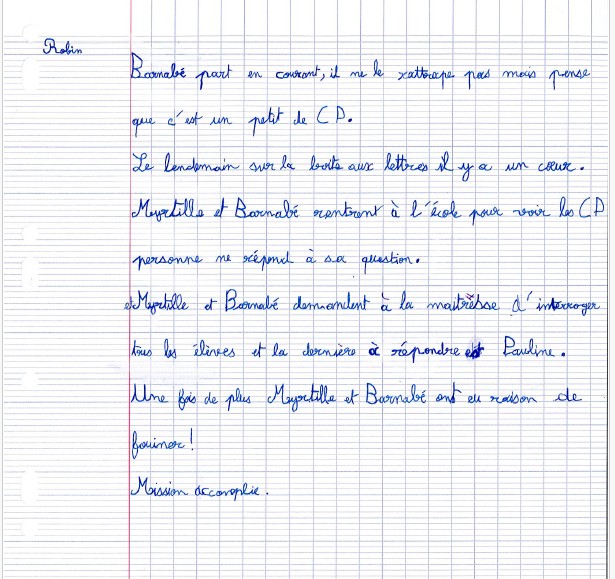 Robin
Barnabé part en courant, il ne le rattrape pas mais pense
que c'est un petit de CP.
Le lendemain sur la boite aux lettres il y a un cœur.
Myrtille et Barnabé rentrent à l'école pour voir les CP
personne ne répond à sa question.
et Myrtille et Barnabé demandent à la maîtrèsse d'interroger
tous les élèves et la dernière à répondre est Pauline.
Une fois de plus Myrtille et Barnabé ont eu raison de
fouiner !
Mission accomplie.